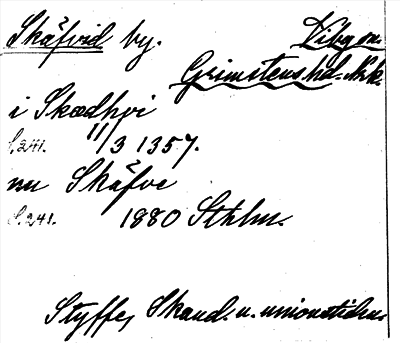 Skäfvid by. Viby sn.
Grimstens hd. Nrk.
i Skædhvi
S. 241. 11/3 1357.
nu Skäfve
S. 241. 1880 Sthlm.
Styffe, Skand. u. unionstiden.